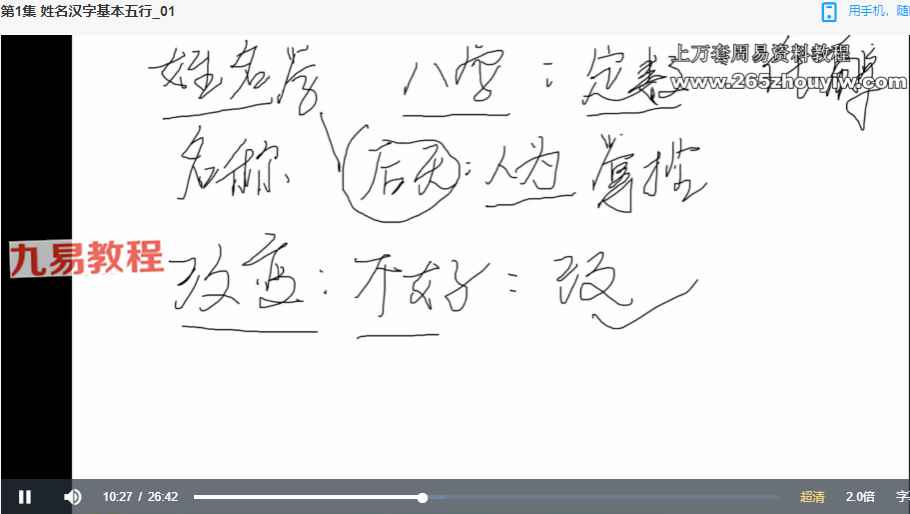 第1集 姓名汉字基本五行_01
用手机，随
上万套周易资料教程
www.265zhouyijw.com
姓名学 八字：定数
名称、 后天：人为 掌控
九易教程
改变：不好：改
10:27 / 26:42 超清 2.0倍 字